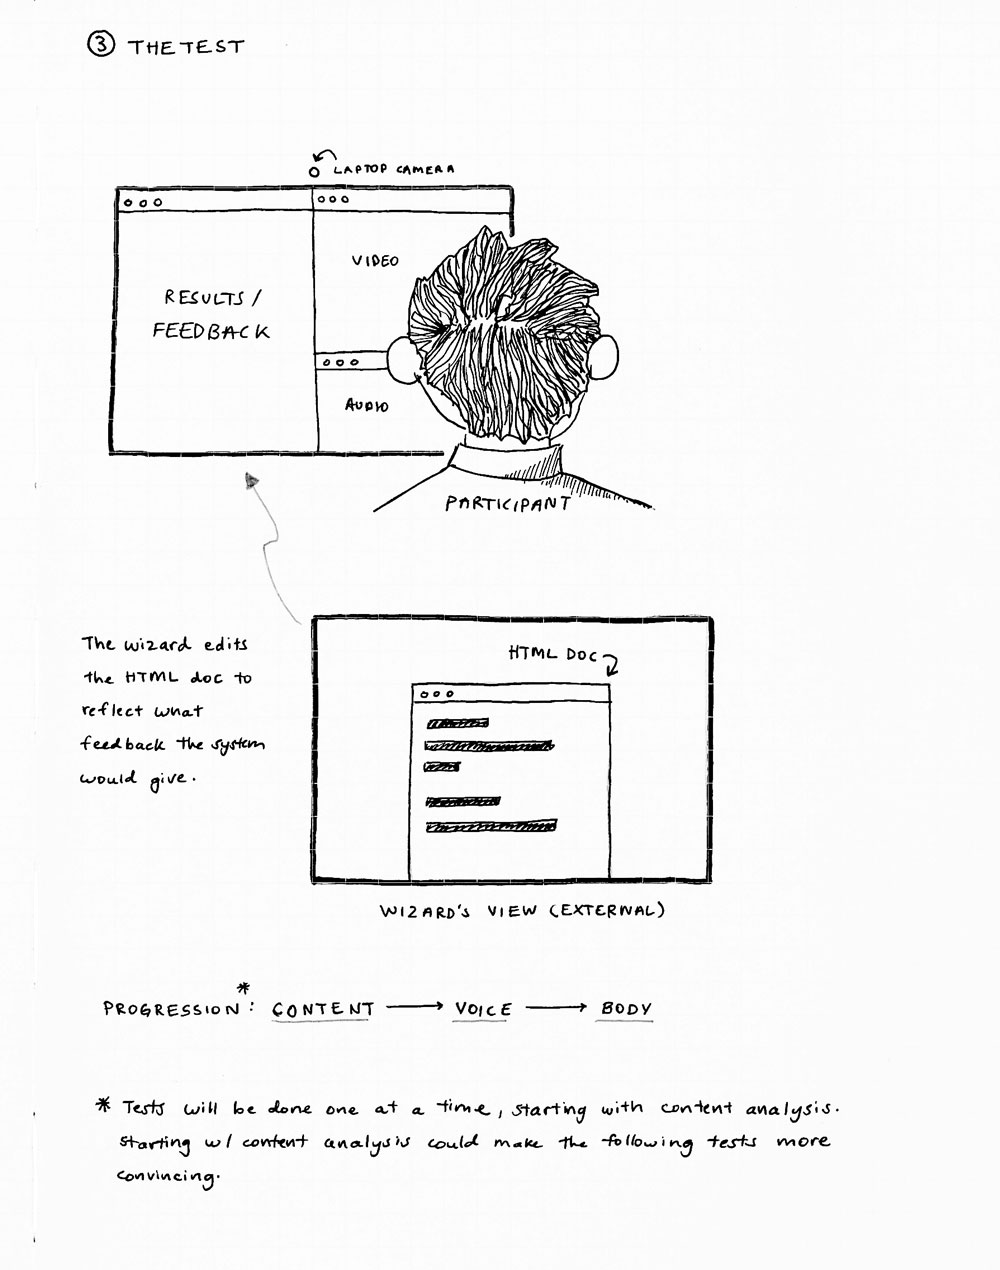 3 THE TEST
LAPTOP CAMERA
VIDEO
RESULTS /
FEEDBACK
AUDIO
PARTICIPANT
The wizard edits
the HTML doc to
reflect what
feedback the system
would give.
HTML DOC
WIZARD'S VIEW (EXTERNAL)
PROGRESSION*: CONTENT → VOICE → BODY
* Tests will be done one at a time, starting with content analysis.
Starting w/ content analysis could make the following tests more
convincing.